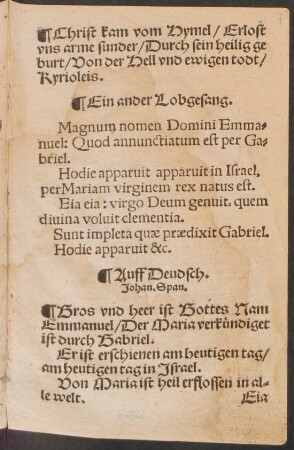 ¶Christ kam vom Hymel/ Erlost
vns arme sunder/Durch sein heilig ge
burt/Von der Hell vnd ewigen todt/
Kyrioleis.
¶Ein ander Lobgesang.
Magnum nomen Domini Emma-
nuel: Quod annunctiatum est per Ga-
briel.
Hodie apparuit apparuit in Israel,
per Mariam virginem rex natus est.
Eia eia: virgo Deum genuit. quem
diuina voluit clementia.
Sunt impleta quæ prædixit Gabriel.
Hodie apparuit &c.
¶Auff Deudsch.
Johan. Span.
¶Gros vnd heer ist Gottes Nam
Emmanuel/Der Maria verkündiget
ist durch Gabriel.
Er ist erschienen am heutigen tag/
am heutigen tag in Israel.
Von Maria ist heil erflossen in al-
le welt.
Eia